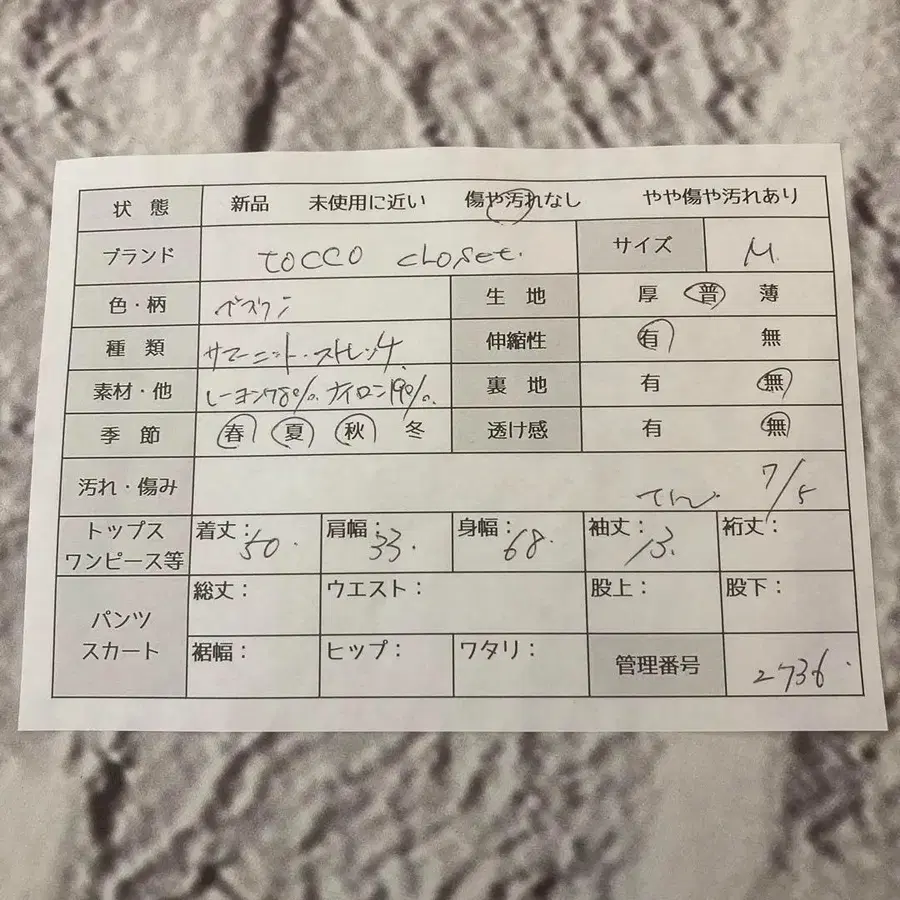 状態 新品 未使用に近い 傷や汚れなし やや傷や汚れあり
ブランド tocco closet. サイズ M.
色・柄 生地 厚 普 薄
種類 サマーニット・ストレッチ 伸縮性 有 無
素材・他 レーヨン78%. ナイロン19%. 裏地 有 無
季節 春 夏 秋 冬 透け感 有 無
汚れ・傷み 7/5
トップス ワンピース等 着丈: 50. 肩幅: 33. 身幅: 68. 袖丈: 13. 裄丈:
パンツ スカート 総丈: ウエスト: 股上: 股下:
裾幅: ヒップ: ワタリ: 管理番号 2736.